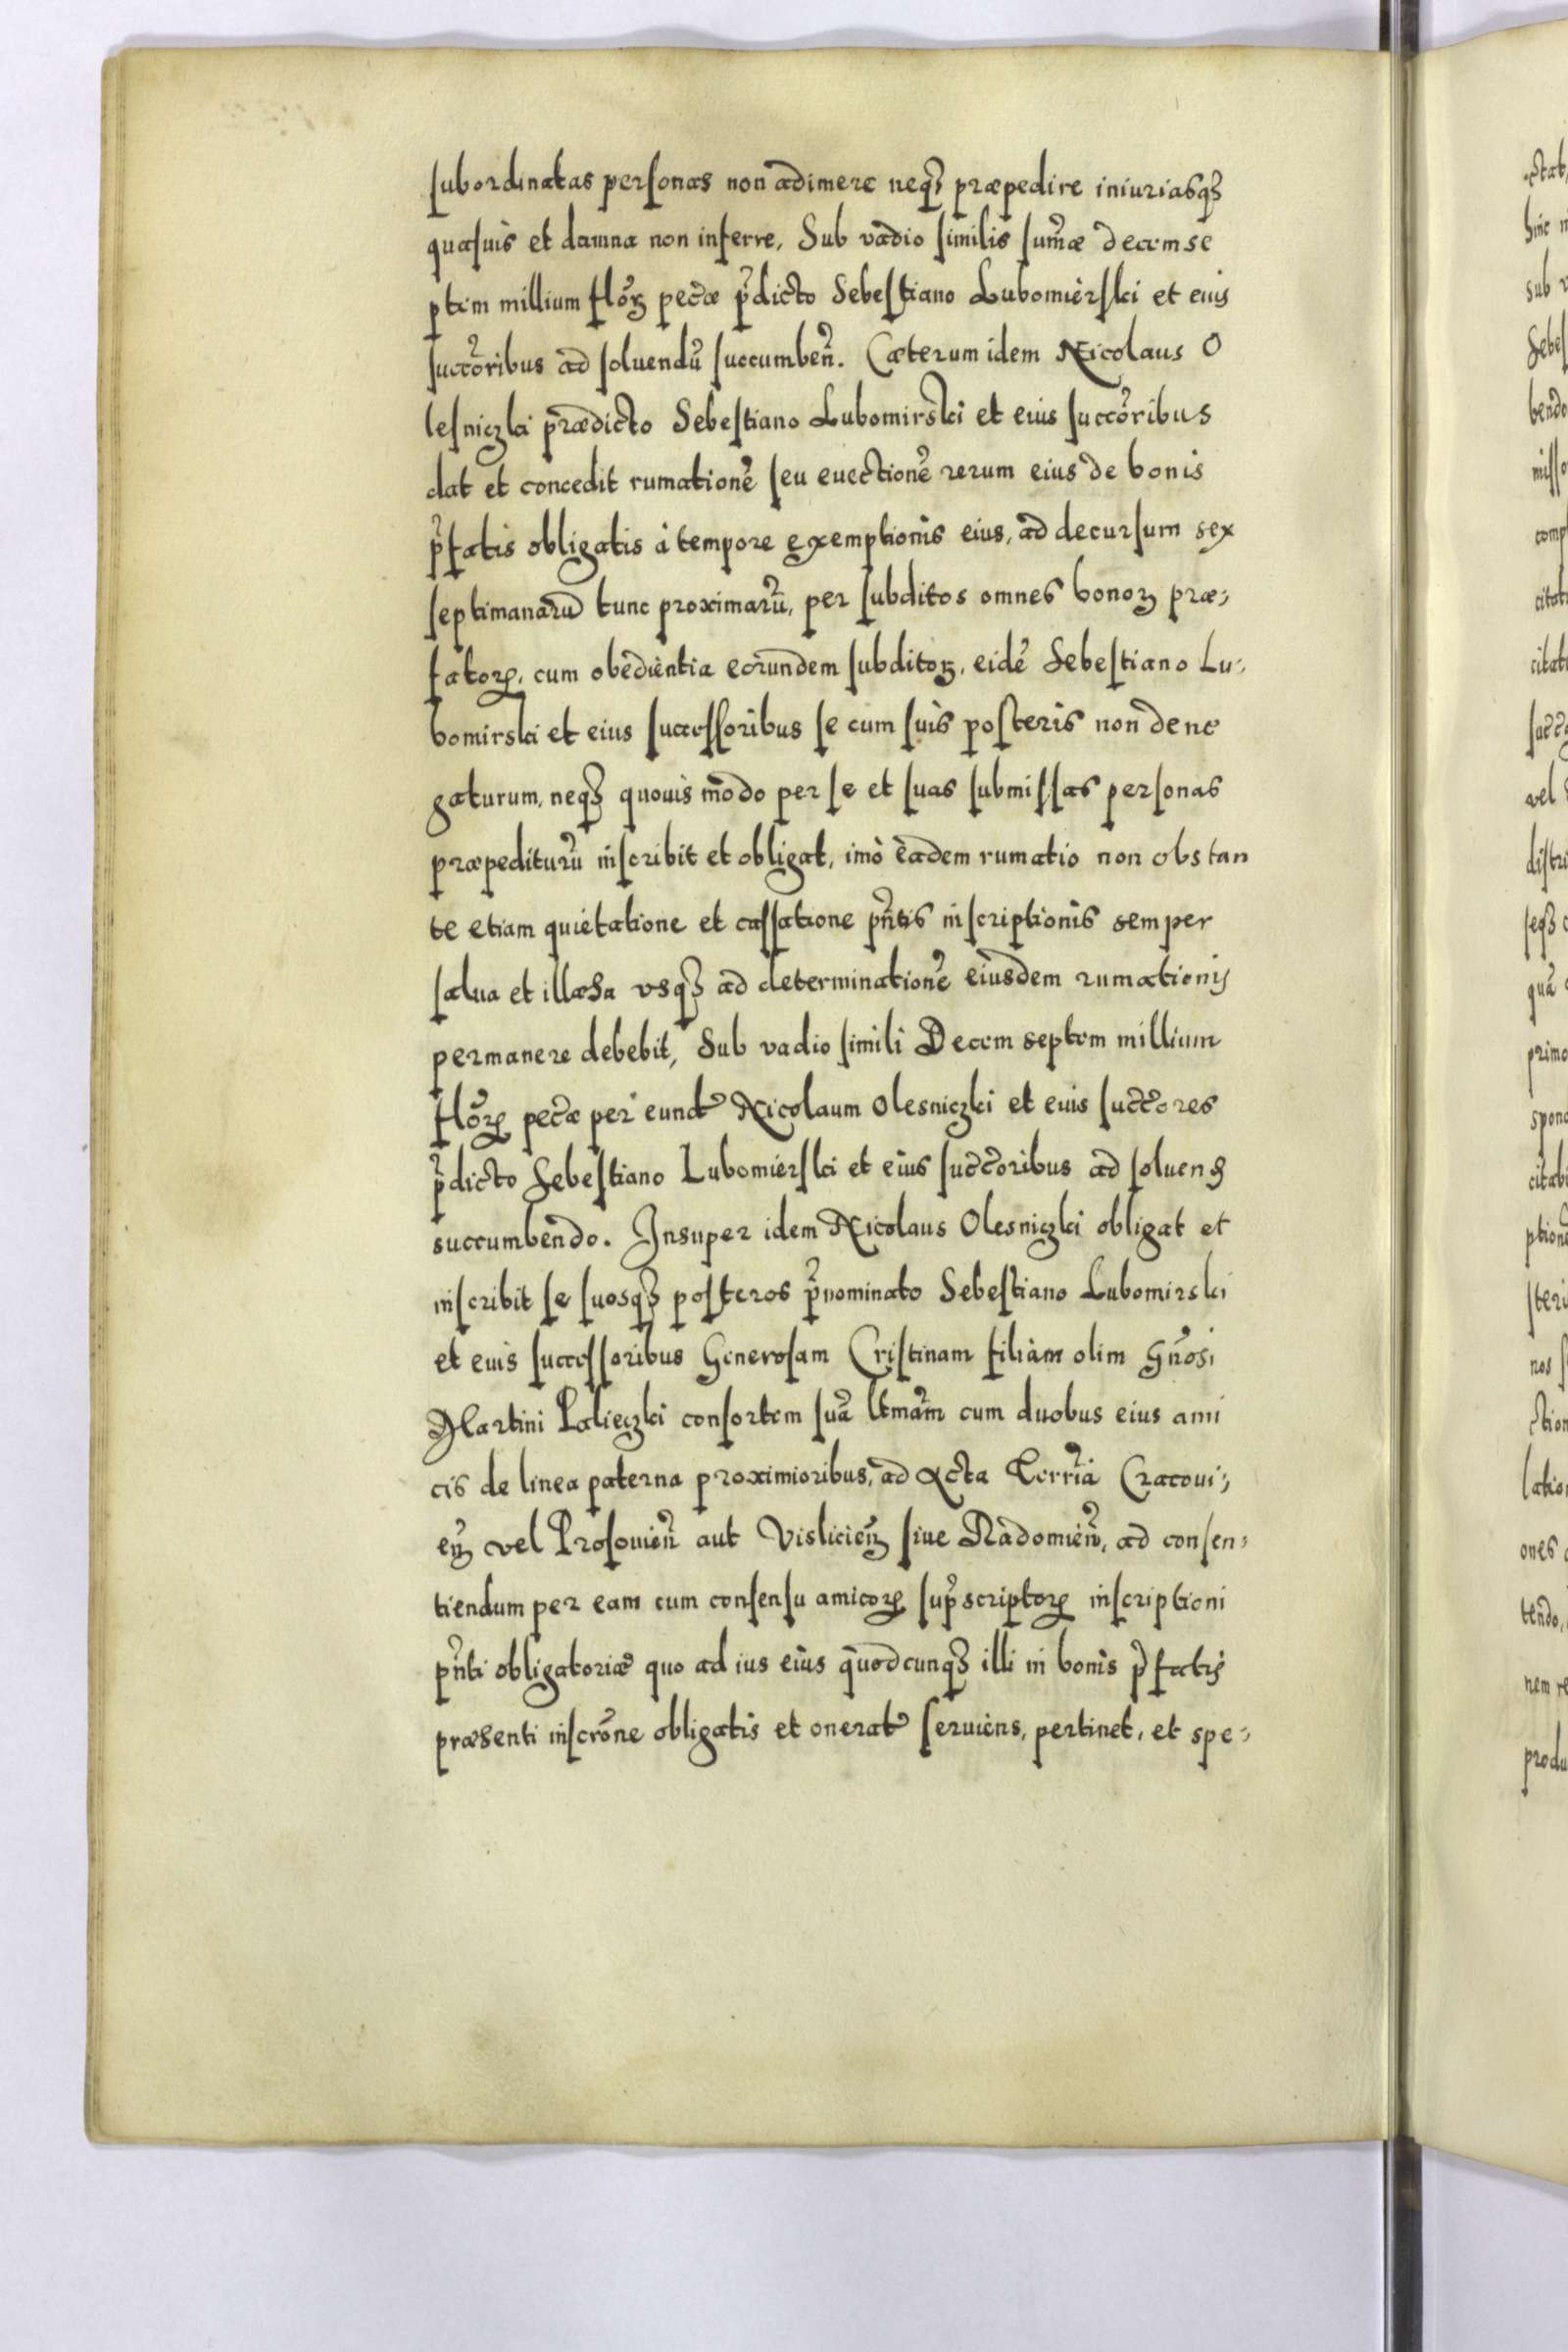 subordinatas personas non adimere neqꝫ præpedire iniuriasqꝫ
quasuis et damna non inferre, Sub vadio similis sum̃æ decem se
ptem millium floꝝ pec̃æ p̃dicto Sebestiano Lubomierski et eius
succ̃oribus ad soluendũ succumbeñ. Cæterum idem Nicolaus O
lesniczki prædicto Sebestiano Lubomirski et eius succ̃oribus
dat et concedit rumationẽ seu euectionẽ rerum eius de bonis
p̃fatis obligatis à tempore exemptionis eius, ad decursum sex
septimanarũ tunc proximarũ, per subditos omnes bonoꝝ præ-
fatoꝝ, cum obedientia eorundem subditoꝝ, eidẽ Sebestiano Lu-
bomirski et eius successoribus se cum suis posteris non dene
gaturum, neqꝫ quouis modo per se et suas submissas personas
præpediturũ inscribit et obligat, imò eadem rumatio non obstan
te etiam quietatione et cassatione pñtis inscriptionis semper
salua et illæsa vsqꝫ ad determinationẽ eiusdem rumationis
permanere debebit, Sub vadio simili Decem septem millium
floꝝ pec̃æ per eund̃ Nicolaum Olesniczki et eius succ̃ores
p̃dicto Sebestiano Lubomierski et eius succ̃oribus ad soluend
succumbendo. Insuper idem Nicolaus Olesniczki obligat et
inscribit se suosqꝫ posteros p̃nominato Sebestiano Lubomirski
et eius successoribus Generosam Cristinam filiam olim Gñosi
Martini Palieczki consortem suã ltm̃am cum duobus eius ami
cis de linea paterna proximioribus, ad Acta Terr̃ia Cracoui-
eñ vel Prosouieñ aut Vislicieñ siue Radomieñ, ad consen-
tiendum per eam cum consensu amicoꝝ sup̃scriptoꝝ inscriptioni
pñti obligatoriæ quo ad ius eius quodcunqꝫ illi in bonis p̃fatis
præsenti inscrõne obligatis et onerat̃ seruiens, pertinet, et spe-